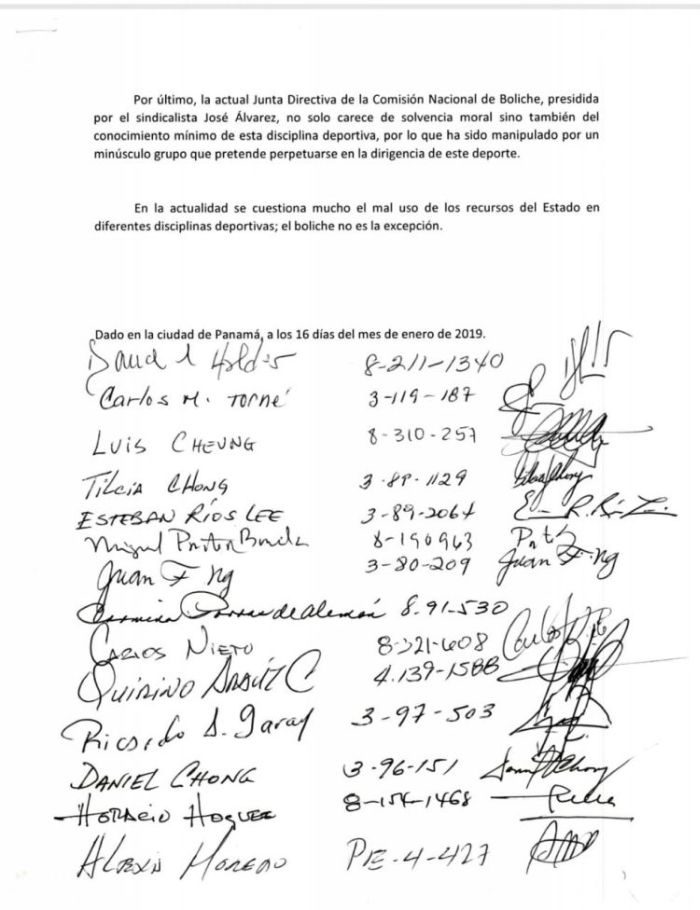 Por último, la actual Junta Directiva de la Comisión Nacional de Boliche, presidida
por el sindicalista José Álvarez, no solo carece de solvencia moral sino también del
conocimiento mínimo de esta disciplina deportiva, por lo que ha sido manipulado por un
minúsculo grupo que pretende perpetuarse en la dirigencia de este deporte.
En la actualidad se cuestiona mucho el mal uso de los recursos del Estado en
diferentes disciplinas deportivas; el boliche no es la excepción.
Dado en la ciudad de Panamá, a los 16 días del mes de enero de 2019.
8-211-1340
Carlos M. Torné 3-119-187
LUIS CHEUNG 8-310-257
TILCIA CHONG 3-89-1129
ESTEBAN RÍOS LEE 3-89-2064
Miguel 8-190963
Juan F Ng 3-80-209 Juan F. Ng
de Alemán 8.91-530
CARLOS NIETO 8-321-608
QUIRINO ARAÚZ C 4.139-1588
Ricardo A. Garay 3-97-503
DANIEL CHONG 3-96-151
HORACIO 8-154-1468
MORENO PE-4-427